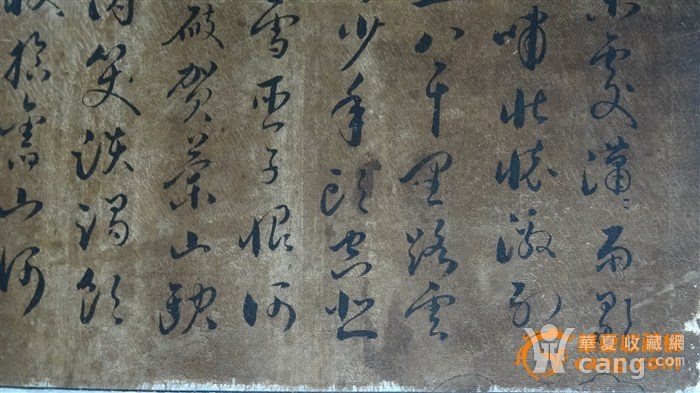 處瀟瀟雨歇
嘯壯懷激烈
八千里路雲
少年頭空悲
雪臣子恨何
破賀蘭山缺
笑談渴飲
拾舊山河
華夏收藏網
Wcang.com